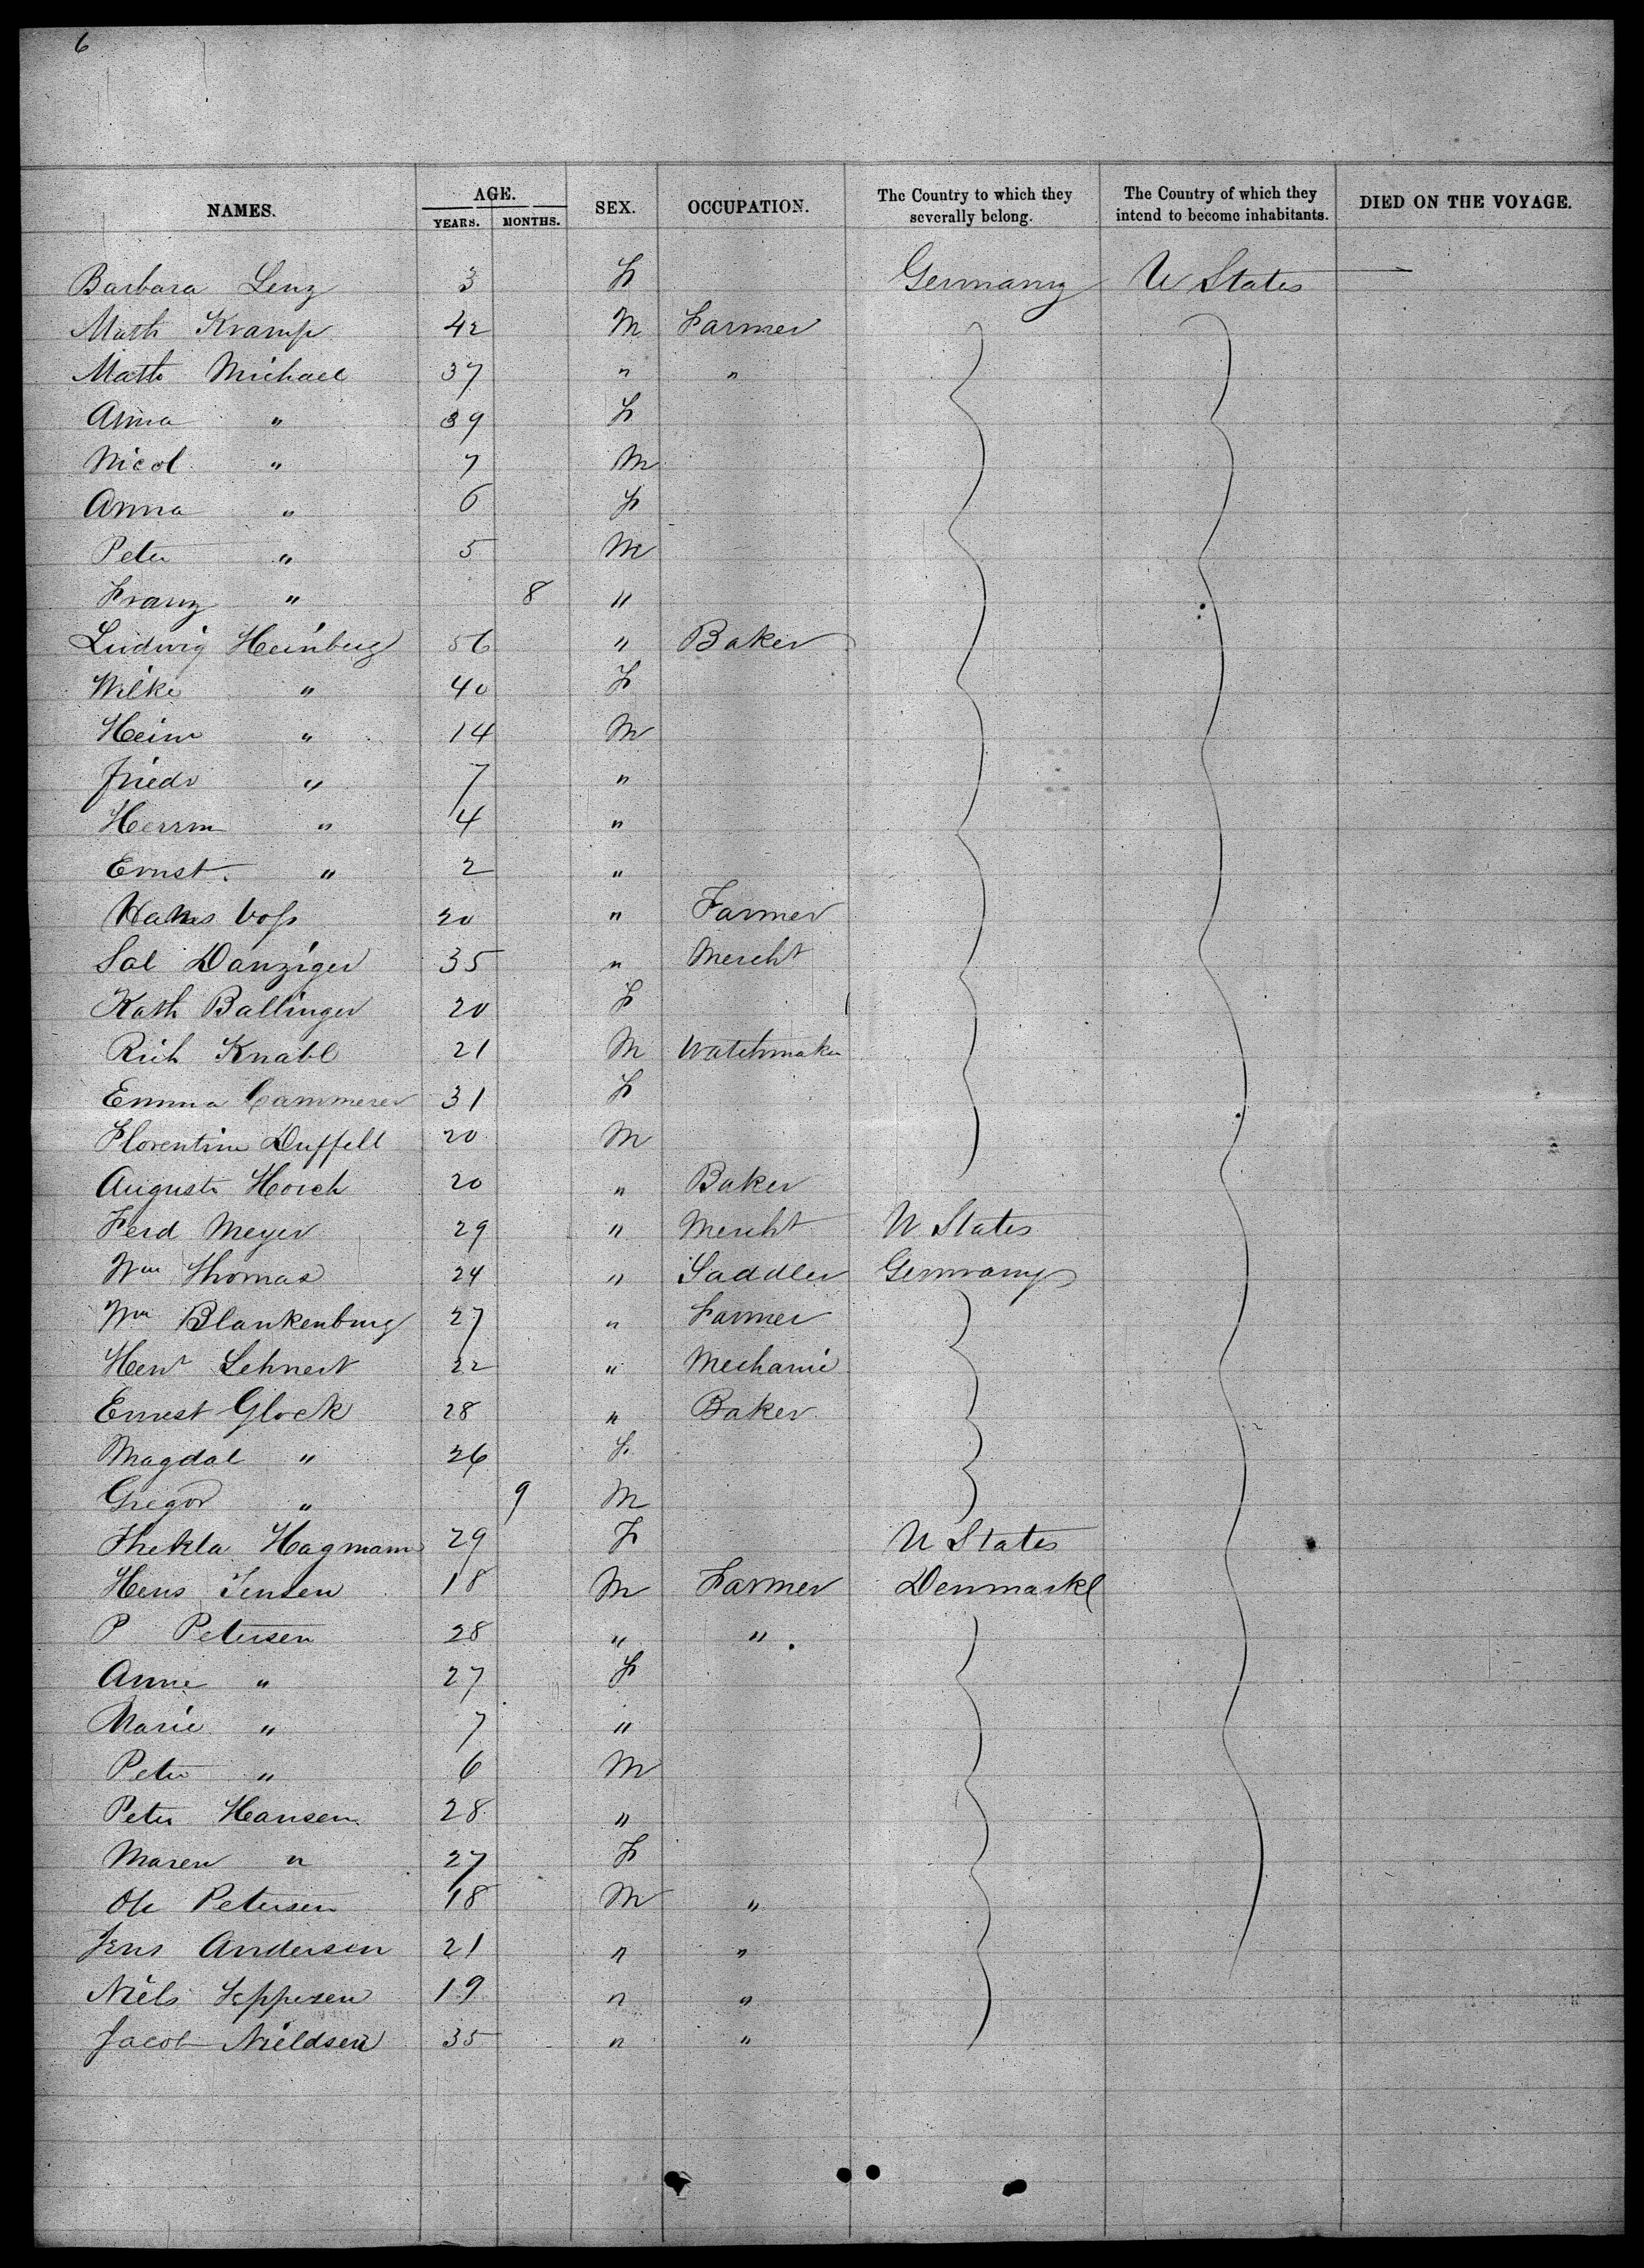 6
NAMES. AGE. YEARS. MONTHS. SEX. OCCUPATION. The Country to which they severally belong. The Country of which they intend to become inhabitants. DIED ON THE VOYAGE.
Barbara Lenz 3 F Germany U States
Math Kramp 42 M Farmer
Math Michael 37 " "
Anna " 39 F
Nicol " 7 M
Anna " 6 F
Peter " 5 M
Franz " 8 "
Ludwig Heinberg 56 " Baker
Wilke " 40 F
Heinr " 14 M
Friedr " 7 "
Herrm " 4 "
Ernst. " 2 "
Hanns Voss 20 " Farmer
Sal Danziger 35 " Mercht
Kath Ballinger 20 F
Rich Knabl 21 M Watchmaker
Emma Cammerer 31 F
Florentine Duffell 20 M
August Horch 20 " Baker
Ferd Meyer 29 " Mercht U States
Wm Thomas 24 " Saddler Germany
Wm Blankenburg 27 " Farmer
Henr Lehnert 22 " Mechanic
Ernest Glock 28 " Baker
Magdal " 26 F
Gregor " 9 M
Thekla Hagmann 29 F U States
Hens Jensen 18 M Farmer Denmark
P Petersen 28 " "
Anne " 27 F
Marie " 7 "
Peter " 6 M
Peter Hansen 28 "
Maren " 27 F
Ole Petersen 18 M "
Jens Andersen 21 " "
Niels Jeppesen 19 " "
Jacob Nieldsen 35 " "